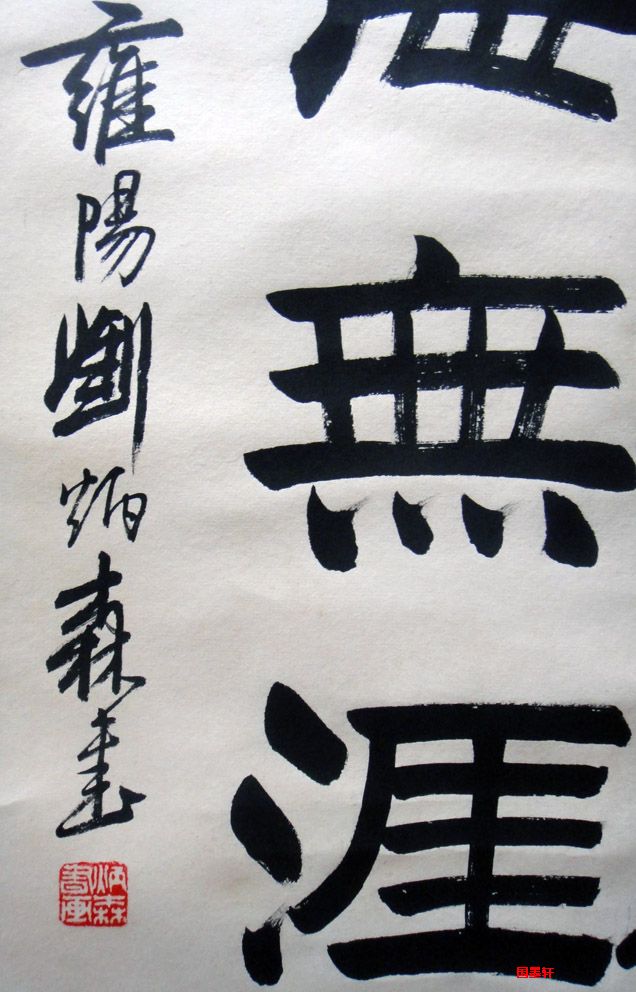 無涯
雍陽劉炳森書
炳森書画
国墨轩